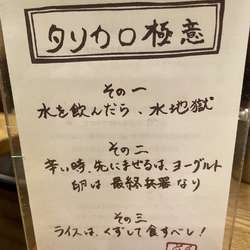 タリカロ極意
その一
水を飲んだら、水地獄
その二
辛い時、先にまぜるは、ヨーグルト
卵は最終兵器なり
その三
ライスは、くずして食すべし!